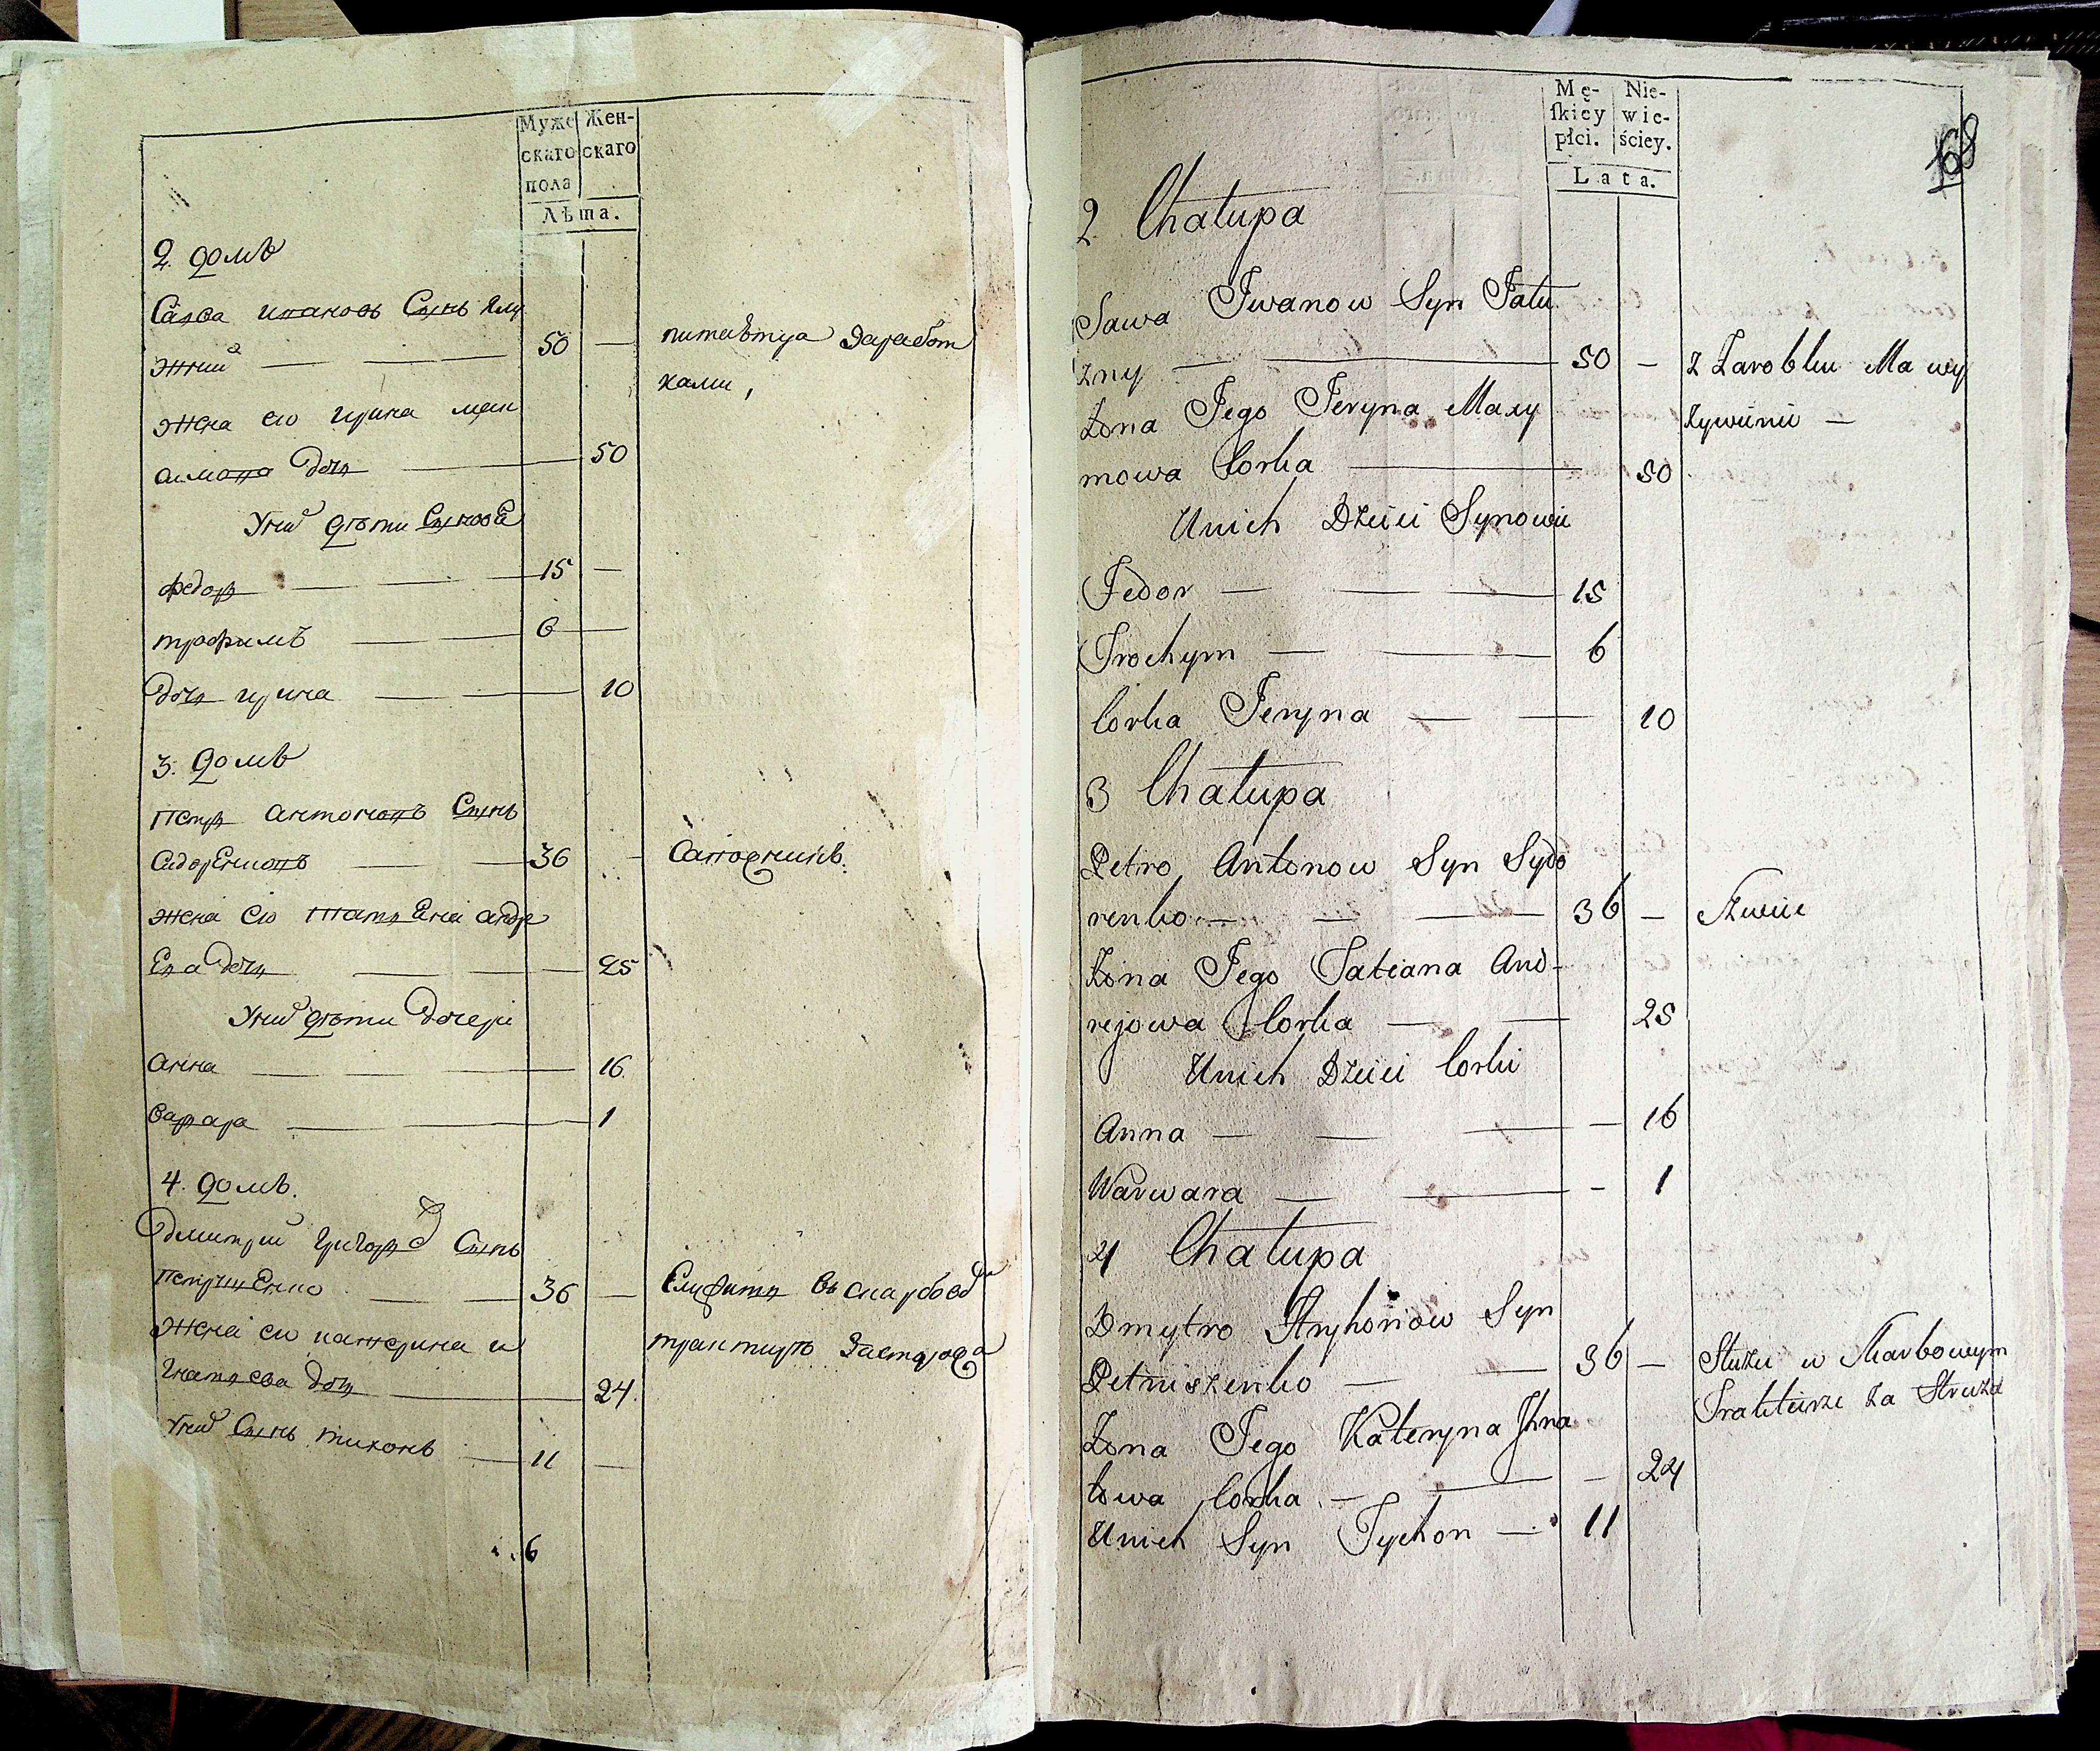 Муже
скаго
пола
Жен-
скаго
Лѣта.
2. домъ
Савва ивановъ СынъЯлу
жний — — — 50 —
питаѣтца Заработ
ками,
жена его ирина мак
симова дочь — 50
Уних дѣти Сыновя
федор — — — 15 —
трофимъ — — 6 —
Дочь ирина — — 10
3. домъ
Петр антоновъ Сынъ
СидорЕнковъ — — 36 —
Сапожникъ.
жена его татьЕна андр
Ева дочь — — — 25
Уних дѣти дочери
анна — — — 16.
варвара — — 1
4. домъ.
Дмитрий Григоръев Сынъ
ПетрушЕнко — — 36 —
Служитъ въ скарбовом
жена его катерина и
трактиръ За сторожа
гнатъева дочь — 24.
Уних Сынъ тихонъ — 11 —
6
Mę-
skiey
płci.
Nie-
wie-
ściey.
Lata.
68
2 Chałupa
Sawa Iwanow Syn Jału
zny — — 50 —
z Zarobku Ma wy
Żona Jego Jeryna Maxy
żywienie —
mowa Corka — 50
Unich Dzieci Synowie
Fedor — — — 15
Trochym — — 6
Corka Jeryna — — 10
3 Chałupa
Petro Antonow Syn Sydo
renko — — — 36 —
Szwiec
Żona Jego Tatiana And-
rejowa Corka — — 25
Unich Dzieci Corki
Anna — — — — 16
Warwara — — - 1
4 Chałupa
Dmytro Hryhorow Syn
Petruszenko — — 36 —
Służy w Skarbowym
Traktierze za Stroża
Żona Jego Kateryna Ihna
towa Corka — — — 24
Unich Syn Tychon — 11